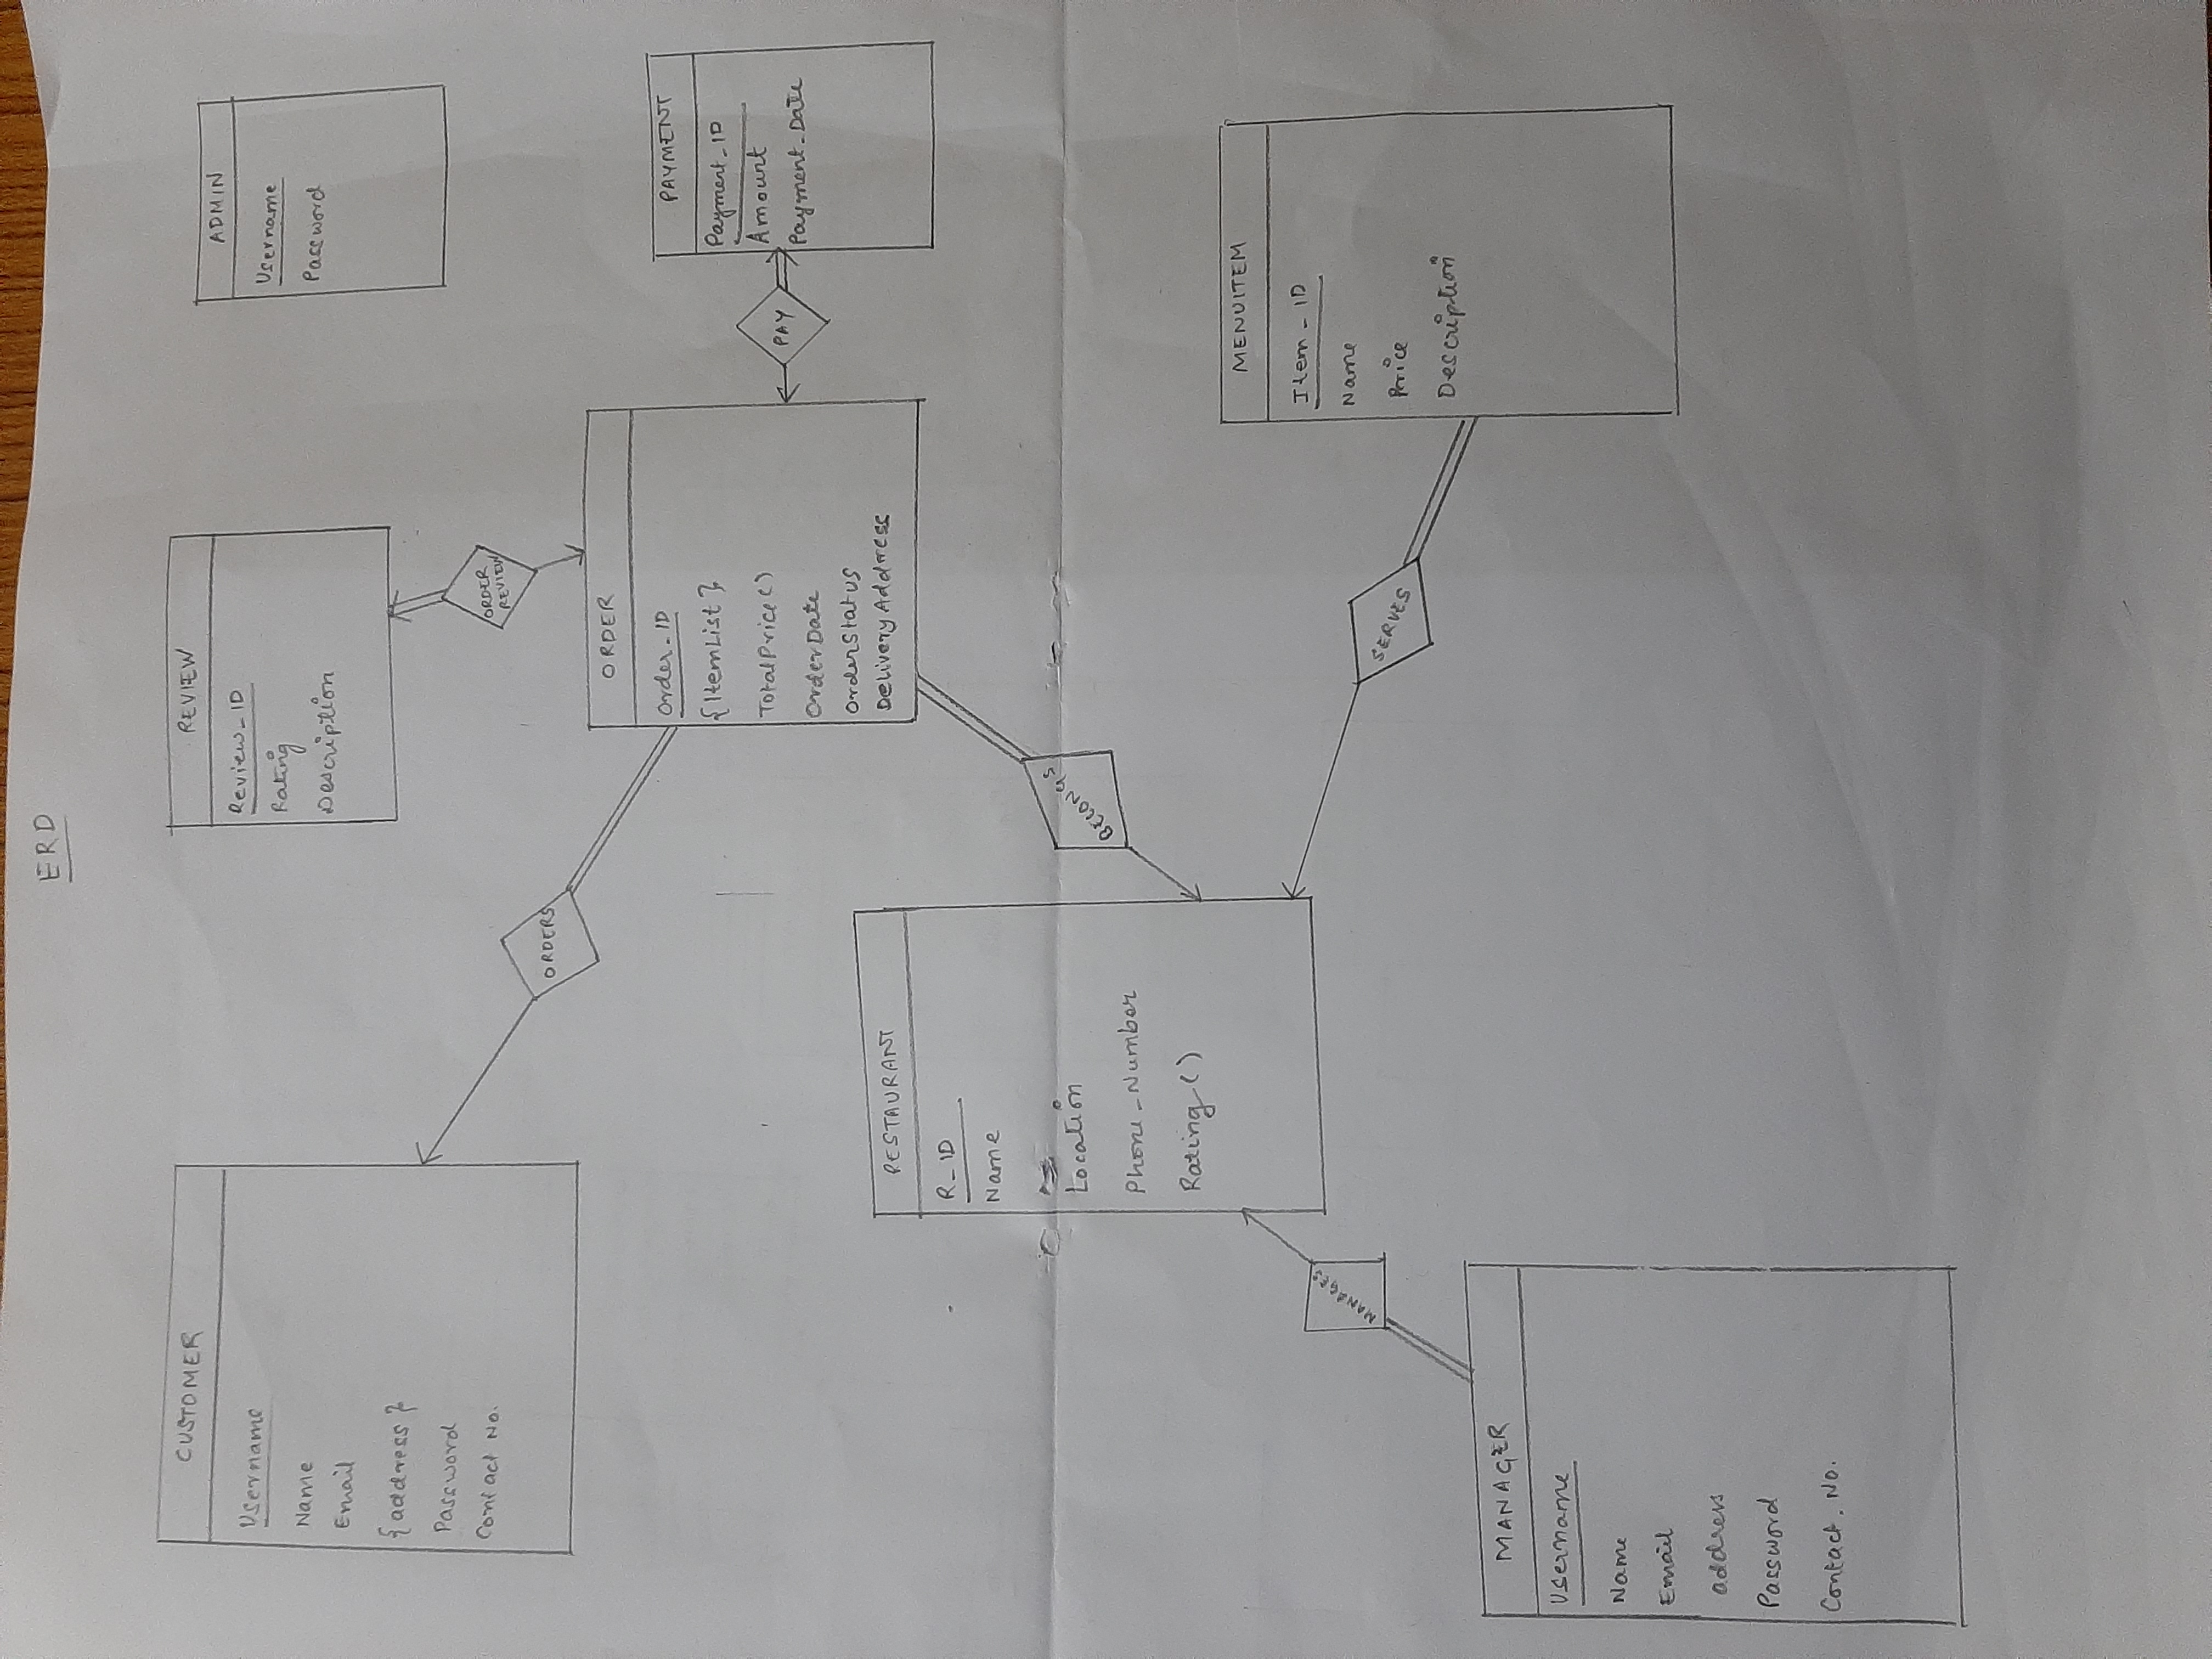 ERD
CUSTOMER
Username
Name
Email
{address}
Password
Contact No.
REVIEW
Review_ID
Rating
Description
ADMIN
Username
Password
ORDERS
ORDER
REVIEW
ORDER
Order_ID
{ItemList}
TotalPrice()
OrderDate
OrderStatus
Delivery Address
PAY
PAYMENT
Payment_ID
Amount
Payment_Date
RESTAURANT
R_ID
Name
Location
Phone_Number
Rating()
BELONGS
MANAGES
SERVES
MENUITEM
Item_ID
Name
Price
Description
MANAGER
Username
Name
Email
address
Password
Contact. No.